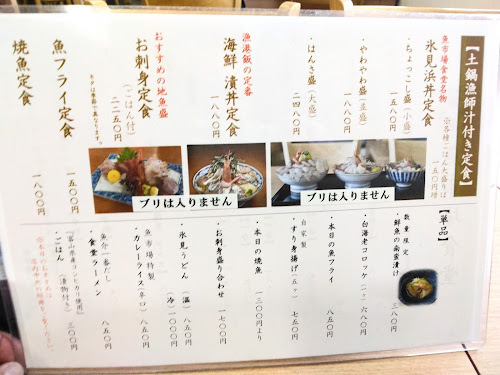 【土鍋漁師汁付き定食】
※各種ごはん大盛りは一五〇円増
魚市場食堂名物
氷見浜丼定食
・ちょっこし盛(小盛)
・やわやわ盛(並盛)
一八八〇円
・はんさ盛(大盛)
二四八〇円
漁港飯の定番
海鮮漬丼定食
一八八〇円
おすすめの地魚盛
お刺身定食
(ごはん付)
二二五〇円
ネタは季節で異なります。
魚フライ定食
一五〇〇円
焼魚定食
一八〇〇円
ブリは入りません
ブリは入りません
【単品】
数量限定
・鮮魚の南蛮漬け
三八〇円
・白海老コロッケ(二ケ)
六八〇円
・本日の魚フライ
八五〇円
自家製
・すり身揚げ(五ヶ)
七五〇円
・本日の焼魚
一三〇〇円より
・お刺身盛り合わせ
一七〇〇円
・氷見うどん(温)八五〇円
(冷)一〇〇〇円
魚市場特製
・カレーライス(辛口)
八五〇円
魚介一番だし
・食堂ラーメン
八五〇円
『富山県産コシヒカリ使用』
・ごはん(漬物付き)
三〇〇円